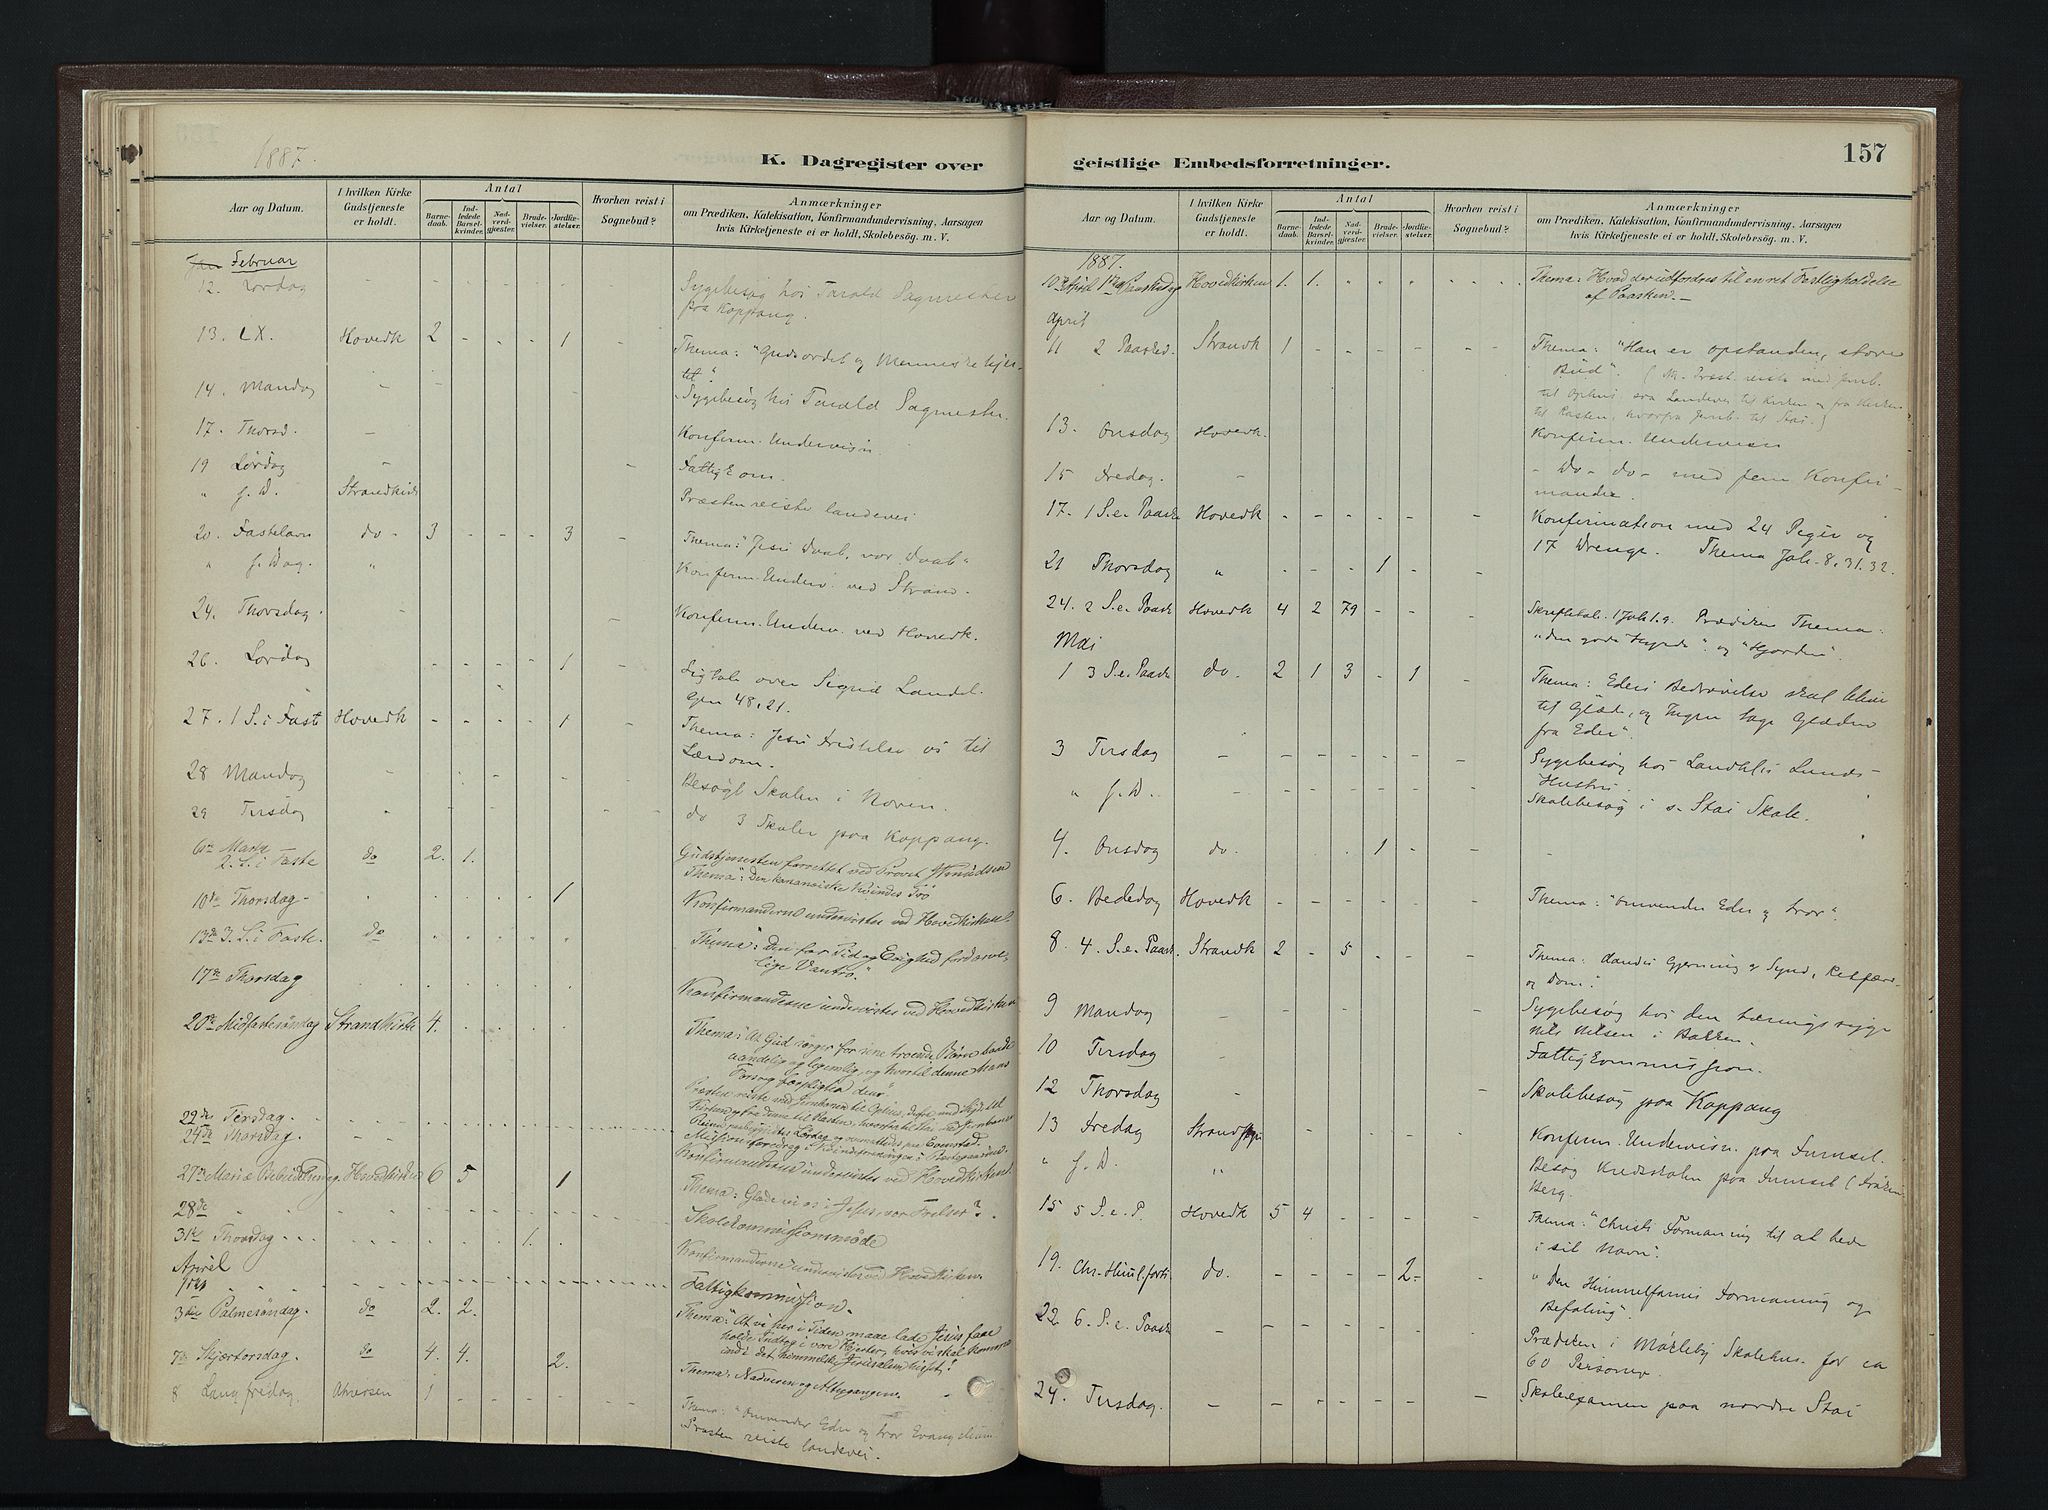 1887.
K. Dagregister over
Aar og Datum.
I hvilken Kirke Gudstjeneste er holdt.
Antal
Barnedaab.
Indledede Barselkvinder.
Nadverdgjæster.
Brudevielser.
Jordfæstelser.
Hvorhen reist i Sognebud?
Anmærkninger
om Prædiken, Katekisation, Konfirmandundervisning, Aarsagen
hvis Kirketjeneste ei er holdt, Skolebesøg. m. V.
Jan Februar
12. Lørdag - Sygebesøg hos Tarald Sagmester
fra Koppang.
13. LX. Hovedk 2 - - - 1 - Thema: "Guds ordet og Menneskehjer-
tet".
14. Mandag - Sygebesøg hos Tarald Sagmester.
17. Thorsd. - Konfirm. Undervisn.
19 Lørdag - -
" s. D. Strandkirk Præsten reiste landevei
20. Fastelavn do - 3 - - - 3 - Thema: "Jesu Daab, vor Daab"
" s. Dag. " Konfirm. Underv. ved Strand.
24. Thorsdag. - - Konfirm. Underv. ved Hovedk.
26. Lørdag - - - - 1 - Ligtale over Sigrid Landet.
Gen 48,21.
27. 1 S. i Faste Hovedk - - - - 1 - Thema: Jesu Fristelse os til
Lærdom.
28 Mandag - Besøgt Skolen i Noren.
29 Tirsdag - do 3 Skoler paa Koppang.
6te Marts
2. S. i Faste do 2. 1. Gudstjenesten forrettet ved Provst Knudsen
Thema: "Den kananæiske Kvindes Tro"
10de Thorsdag - 1 Konfirmanderne undervistes ved Hovedkirken.
13de 3. S. i Faste. do Thema: "Den for Tid og Evighed fordærve-
lige Vantro."
17de Thorsdag Konfirmanderne undervistes ved Hovedkirken
20de Midfastesøndag StrandKirke 4. Thema: "At Gud sørger for sine troende Børn baade
aandelig og legemlig, og hvortil denne Hans
Forsorg forpligter dem"
Præsten reiste ved Jernbanen til Ophus,
22de Tirsdag.
24de Thorsdag. Konfirmanderne undervistes ved Hovedkirken.
27de Mariæ Bebudelsesdag. Hovedkirken 6 5 1 Thema: Glæde vi os i Jesus vor Frelser?
28de Skolekommissionsmøde
31te Thorsdag 1. Konfirmanderne undervistes ved Hovedkirken.
April
1ste Fattigkommission.
3die Palmesøndag. do 2. 2. Thema: "At vi her i Tiden maae lade Jesus faae
holde Indtog i vore Hjerter, hvis vi skal komme
ind i det himmelske Jerusalem hisset!
7de Skjærtorsdag. do 4. 4. 2. Thema: Nadveren og Altergangen.
8 Langfredag Atneosen 1 Thema: "Omvender Eder og tror Evangelium"
Præsten reiste landevei.
geistlige Embedsforretninger.
157
Aar og Datum.
I hvilken Kirke Gudstjeneste er holdt.
Antal
Barnedaab.
Indledede Barselkvinder.
Nadverdgjæster.
Brudevielser.
Jordfæstelser.
Hvorhen reist i Sognebud?
Anmærkninger
om Prædiken, Katekisation, Konfirmandundervisning, Aarsagen
hvis Kirketjeneste ei er holdt, Skolebesøg. m. V.
1887.
10de April 1ste Paaskedag Hovedkirken 1. 1. Thema: Hvad der udfordres til en ret Festligholdelse
af Paasken. -
April
11 2 Paasked. Strandk 1 - - - - - Thema: "Han er opstanden, store
Bud". reiste med Jernb.
til Ophus, saa Landevei til Kirken og fra Kirken
til Rasten, hvorfra Jernb. til Stai.)
13. Onsdag Hovedk. Konfirm. Undervisn
15 Fredag. - - Do - do - med fem Konfir-
mander.
17. 1 S. e. Paaske Hovedk - - - - - - Konfirmation med 24 Piger og
17 Drenge. Thema Joh. 8, 31.32.
21 Thorsdag " - - - 1 - -
24. 2 S. e. Paaske Hovedk 4 2 79 - - - Skriftetal. 1 Joh 1.9. Prædiken Thema:
"den gode Hyrde" og "Hjorden".
Mai
1 3 S. e. Paaske do. 2 1 3 - 1 - Thema: "Eders Bedrøvelse skal blive
til Glæde, og Ingen tage Glæden
fra Eder".
3 Tirsdag - Sygebesøg hos Lunds
Hustru.
" s. D. - Skolebesøg i s. Stai Skole.
4. Onsdag do. 1 - -
6. Bededag Hovedk - - - - - - Thema: "Omvender Eder og tror".
8. 4. S. e. Paaske Strandk 2 - 5 - - - Thema: Aandens Gjerning og Synd, Retfærd.
og Dom".
9 Mandag - Sygebesøg hos den tæringssyge
Nils Nilsen i Bakken.
10 Tirsdag - Fattigkommission.
12 Thorsdag - Skolebesøg paa Koppang
13 Fredag Strand Konfirm. Undervisn. paa Sumsel.
" s. D. " Besøg Kredsskolen paa
Berg.
15 5 S. e. P. Hovedk 5 4 - - - - Thema: "Christi Formaning til at bede
i sit Navn".
19. Chr. Himlf. do. - - - - 2 - - "Den Himmelfarnes Formaning og
Befaling".
22. 6. S. e. Paaske - Prædiken i Mørkeby Skolehus. for ca
60 Personer.
24. Tirsdag. - Skoleexamen paa nordre Stai